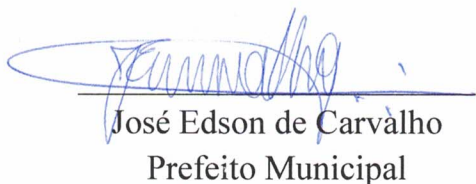 José Edson de Carvalho
Prefeito Municipal